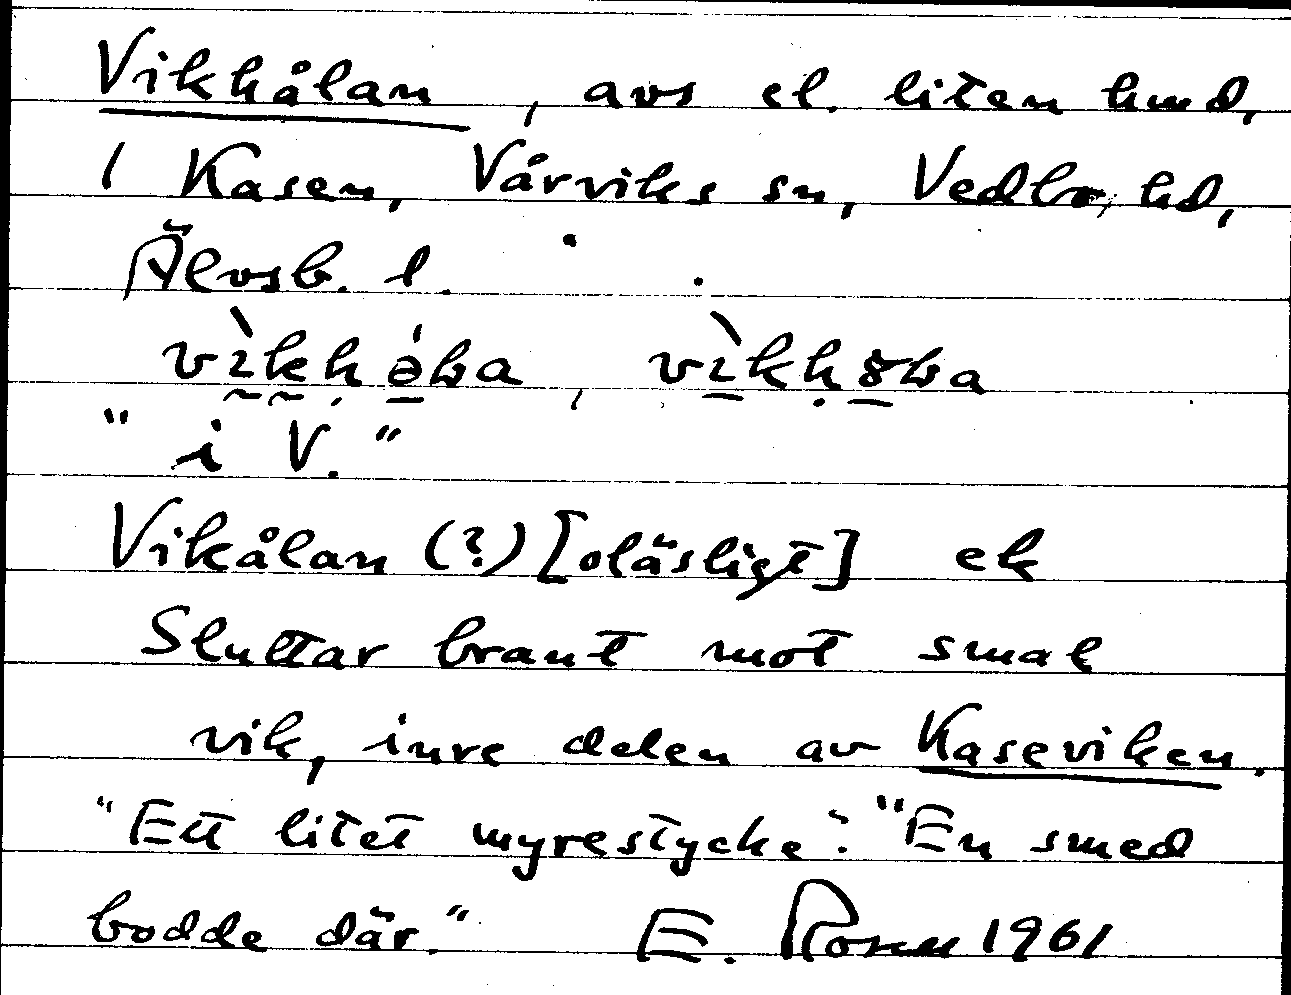 Vikhålan, avs el. liten hmd,
1 Kasen, Vårviks sn, Vedbo hd,
Älvsb. l.
"i V."
Vikålan (?) [oläsligt] ek
Sluttar brant mot smal
vik, inre delen av Kaseviken.
"Ett litet myrestycke". "En smed
bodde där." E. Rosen 1961